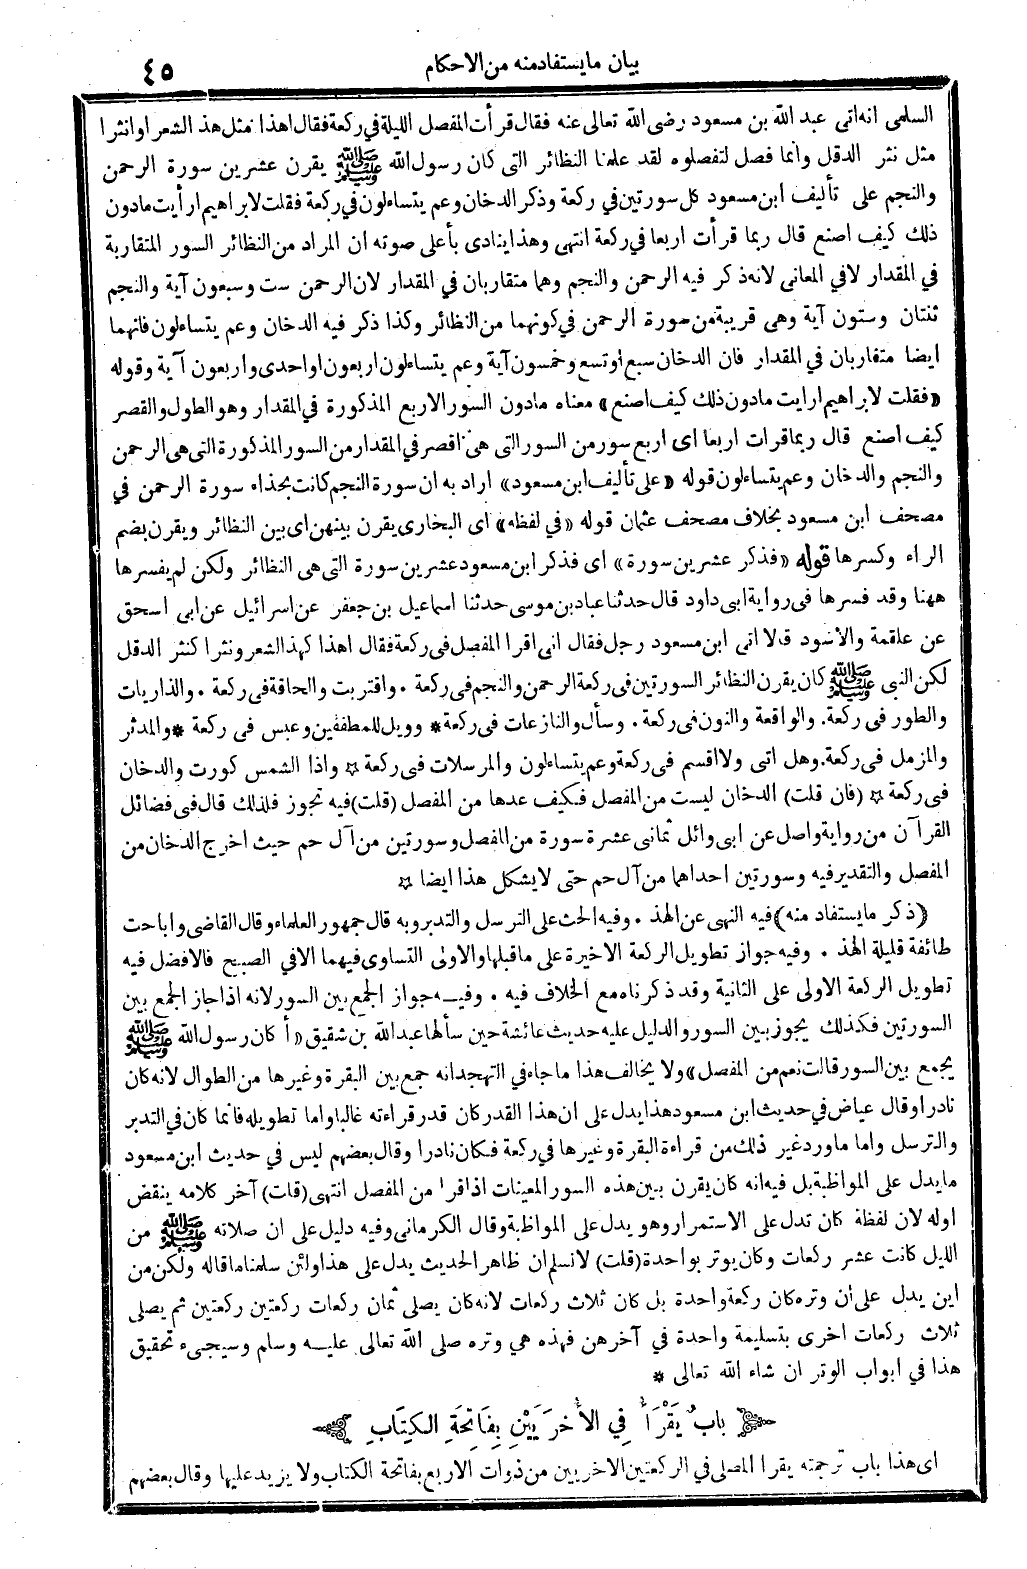 بيان ما يستفاد منه من الاحكام
٤٥
السلمى انه اتى عبد الله بن مسعود رضى الله تعالى عنه فقال قرأت المفصل الليلة فى ركعة فقال اهذا مثل هذ الشعر او انثرا
مثل نثر الدقل وانما فصل لتفصلوه لقد علمنا النظائر التى كان رسول الله ﷺ يقرن عشرين سورة الرحمن
والنجم على تأليف ابن مسعود كل سورتين في ركعة وذكر الدخان وعم يتساءلون في ركعة فقلت لابراهيم ارأيت مادون
ذلك كيف اصنع قال ربما قرأت اربعا في ركعة انتهى وهذا ينادى بأعلى صوته ان المراد من النظائر السور المتقاربة
في المقدار لافي المعانى لانه ذكر فيه الرحمن والنجم وهما متقاربان في المقدار لان الرحمن ست وسبعون آية والنجم
ثنتان وستون آية وهى قريبة من سورة الرحمن في كونهما من النظائر وكذا ذكر فيه الدخان وعم يتساءلون فانهما
ايضا متقاربان في المقدار فان الدخان سبع أو تسع وخمسون آية وعم يتساءلون اربعون او احدى واربعون آية وقوله
«فقلت لابراهيم ارايت مادون ذلك كيف اصنع» معناه مادون السور الاربع المذكورة في المقدار وهو الطول والقصر
كيف اصنع قال ربما قرات اربعا اى اربع سور من السور التى هى اقصر في المقدار من السور المذكورة التى هى الرحمن
والنجم والدخان وعم يتساءلون قوله «على تأليف ابن مسعود» اراد به ان سورة النجم كانت بحذاء سورة الرحمن في
مصحف ابن مسعود بخلاف مصحف عثمان قوله «في لفظه» اى البخارى يقرن بينهن اى بين النظائر ويقرن بضم
الراء وكسرها قوله «فذكر عشرين سورة» اى فذكر ابن مسعود عشرين سورة التى هى النظائر ولكن لم يفسرها
ههنا وقد فسرها فى رواية ابى داود قال حدثنا عباد بن موسى حدثنا اسماعيل بن جعفر عن اسرائيل عن ابى اسحق
عن علقمة والاسود قالا اتى ابن مسعود رجل فقال انى اقرا المفصل فى ركعة فقال اهذا كهذ الشعر ونثرا كنثر الدقل
لكن النبى ﷺ كان يقرن النظائر السورتين فى ركعة الرحمن والنجم فى ركعة . واقتربت والحاقة فى ركعة . والذاريات
والطور فى ركعة . والواقعة والنون فى ركعة . وسأل والنازعات فى ركعة * وويل للمطففين وعبس فى ركعة * والمدثر
والمزمل فى ركعة . وهل اتى ولا اقسم فى ركعة وعم يتساءلون والمرسلات فى ركعة ☆ واذا الشمس كورت والدخان
فى ركعة ☆ (فان قلت) الدخان ليست من المفصل فكيف عدها من المفصل (قلت) فيه تجوز فلذلك قال فى فضائل
القرآن من رواية واصل عن ابى وائل ثمانى عشرة سورة من المفصل وسورتين من آل حم حيث اخرج الدخان من
المفصل والتقدير فيه وسورتين احداهما من آل حم حتى لا يشكل هذا ايضا ☆
(ذكر ما يستفاد منه) فيه النهى عن الهذ . وفيه الحث على الترسل والتدبر وبه قال جمهور العلماء وقال القاضى واباحت
طائفة قليلة الهذ . وفيه جواز تطويل الركعة الاخيرة على ما قبلها والاولى التساوى فيهما الا في الصبح فالافضل فيه
تطويل الركعة الاولى على الثانية وقد ذكرناه مع الخلاف فيه . وفيه جواز الجمع بين السور لانه اذا جاز الجمع بين
السورتين فكذلك يجوز بين السور والدليل عليه حديث عائشة حين سألها عبد الله بن شقيق «أ كان رسول الله ﷺ
يجمع بين السور قالت نعم من المفصل» ولا يخالف هذا ما جاء في التهجد انه جمع بين البقرة وغيرها من الطوال لانه كان
نادرا وقال عياض في حديث ابن مسعود هذا يدل على ان هذا القدر كان قدر قراءته غالبا واما تطويله فانما كان في التدبر
والترسل واما ما ورد غير ذلك من قراءة البقرة وغيرها في ركعة فكان نادرا وقال بعضهم ليس في حديث ابن مسعود
مايدل على المواظبة بل فيه انه كان يقرن بين هذه السور المعينات اذا قرا من المفصل انتهى (قلت) آخر كلامه ينقض
اوله لان لفظة كان تدل على الاستمرار وهو يدل على المواظبة وقال الكرمانى وفيه دليل على ان صلاته ﷺ من
الليل كانت عشر ركعات وكان يوتر بواحدة (قلت) لا نسلم ان ظاهر الحديث يدل على هذا ولئن سلمنا ما قاله ولكن من
اين يدل على أن وتره كان ركعة واحدة بل كان ثلاث ركعات لانه كان يصلى ثمان ركعات ركعتين ركعتين ثم يصلى
ثلاث ركعات اخرى بتسليمة واحدة في آخرهن فهذه هي وتره صلى الله تعالى عليه وسلم وسيجىء تحقيق
هذا في ابواب الوتر ان شاء الله تعالى *
بابٌ يَقْرَأُ فِي الأُخْرَيَيْنِ بِفَاتِحَةِ الكِتَابِ
اى هذا باب ترجمته يقرا المصلى في الركعتين الاخريين من ذوات الاربع بفاتحة الكتاب ولا يزيد عليها وقال بعضهم